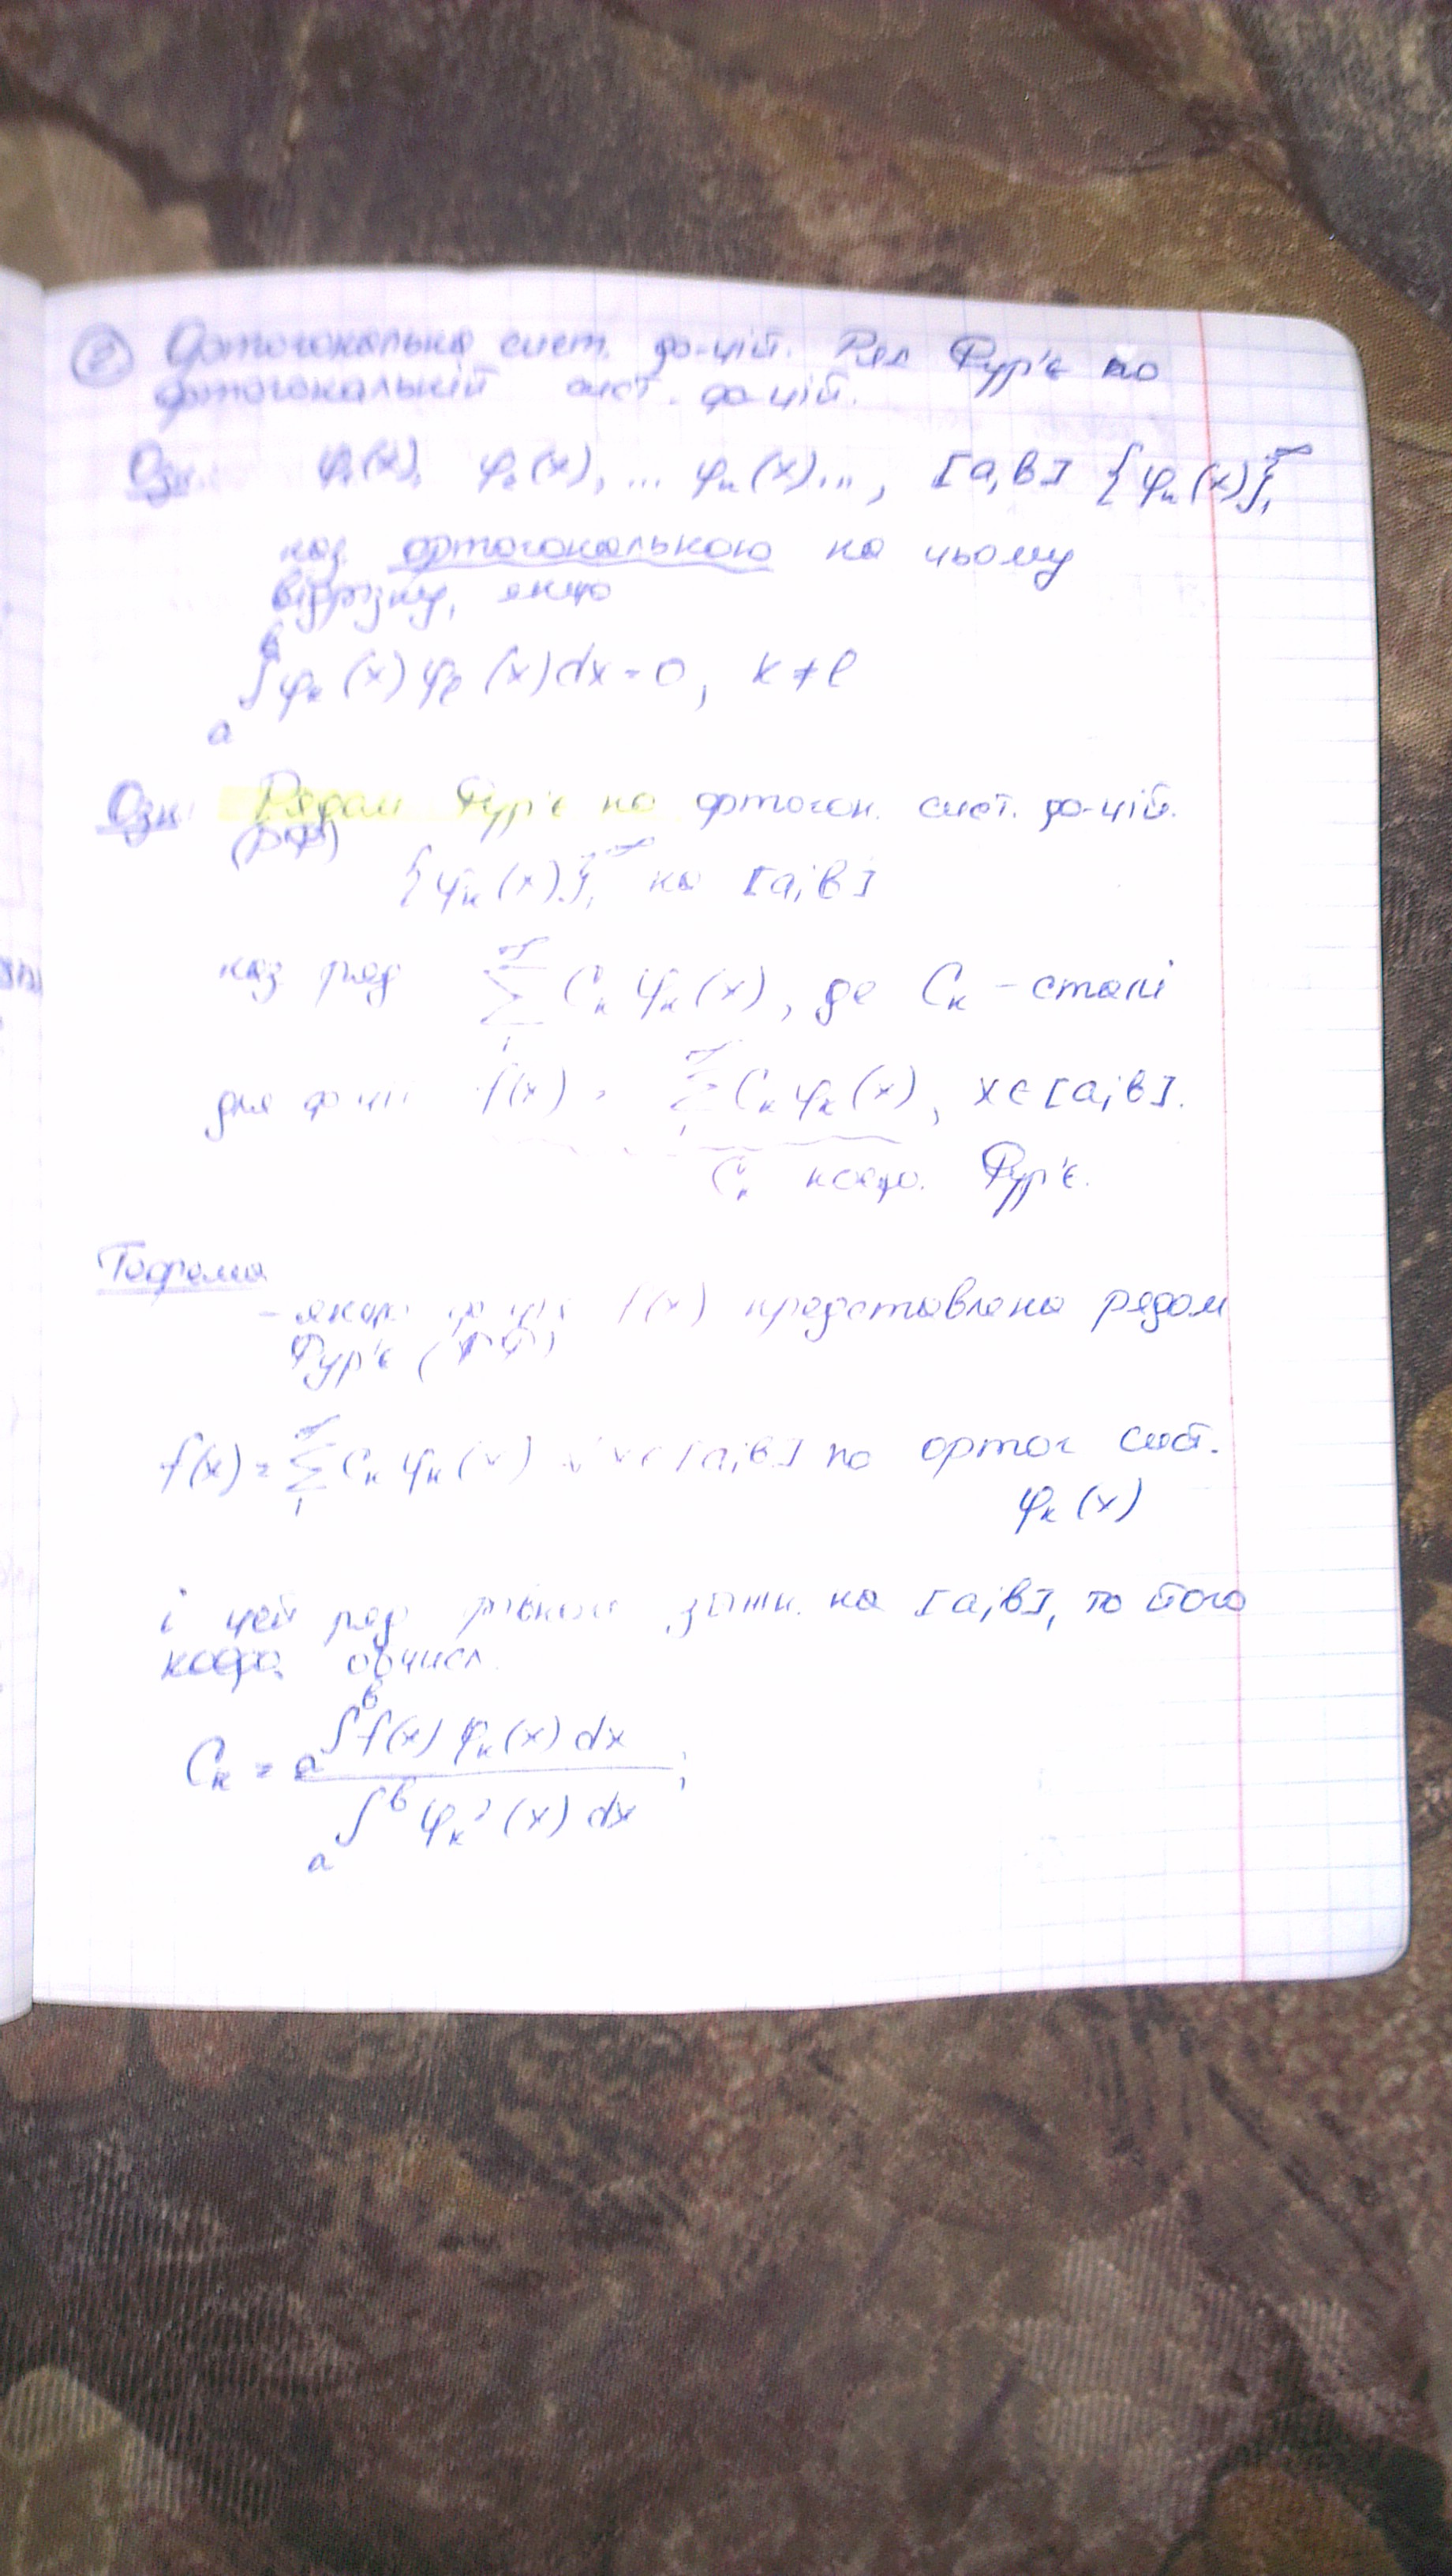 ② Ортогональна сист. ф-цій. Ряд Фур'є по
ортогональній сист. ф-цій.
Озн. φ₁(x), φ₂(x), ... φₙ(x)..., [a,b] {φₙ(x)}₁^∞
наз ортогональною на цьому
відрізку, якщо
∫ₐᵇ φₖ(x) φₗ(x) dx = 0, k ≠ l
Озн: Рядом Фур'є по ортогон. сист. ф-цій.
(РФ)
{φₖ(x)}₁^∞ на [a;b]
наз ряд ∑₁^∞ Cₖ φₖ(x), де Cₖ - сталі
для ф-ції f(x) = ∑₁^∞ Cₖ φₖ(x), x ∈ [a;b].
Cₖ коеф. Фур'є.
Теорема
- якщо ф-ція f(x) представлена рядом
Фур'є (РФ)
f(x) = ∑₁^∞ Cₖ φₖ(x) ∀x ∈ [a;b] по ортог сист.
φₖ(x)
і цей ряд рівном збіжн. на [a;b], то його
коеф. обчисл.
Cₖ = ∫ₐᵇ f(x) φₖ(x) dx / ∫ₐᵇ φₖ²(x) dx ;